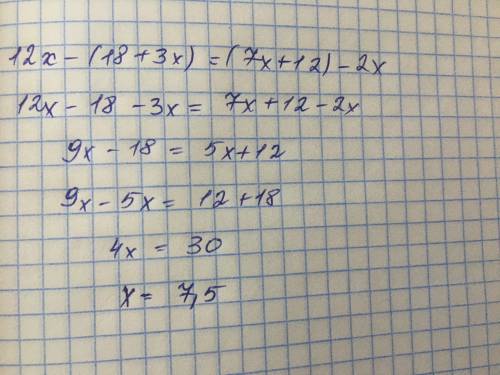 12x - (18 + 3x) = (7x + 12) - 2x
12x - 18 - 3x = 7x + 12 - 2x
9x - 18 = 5x + 12
9x - 5x = 12 + 18
4x = 30
x = 7,5